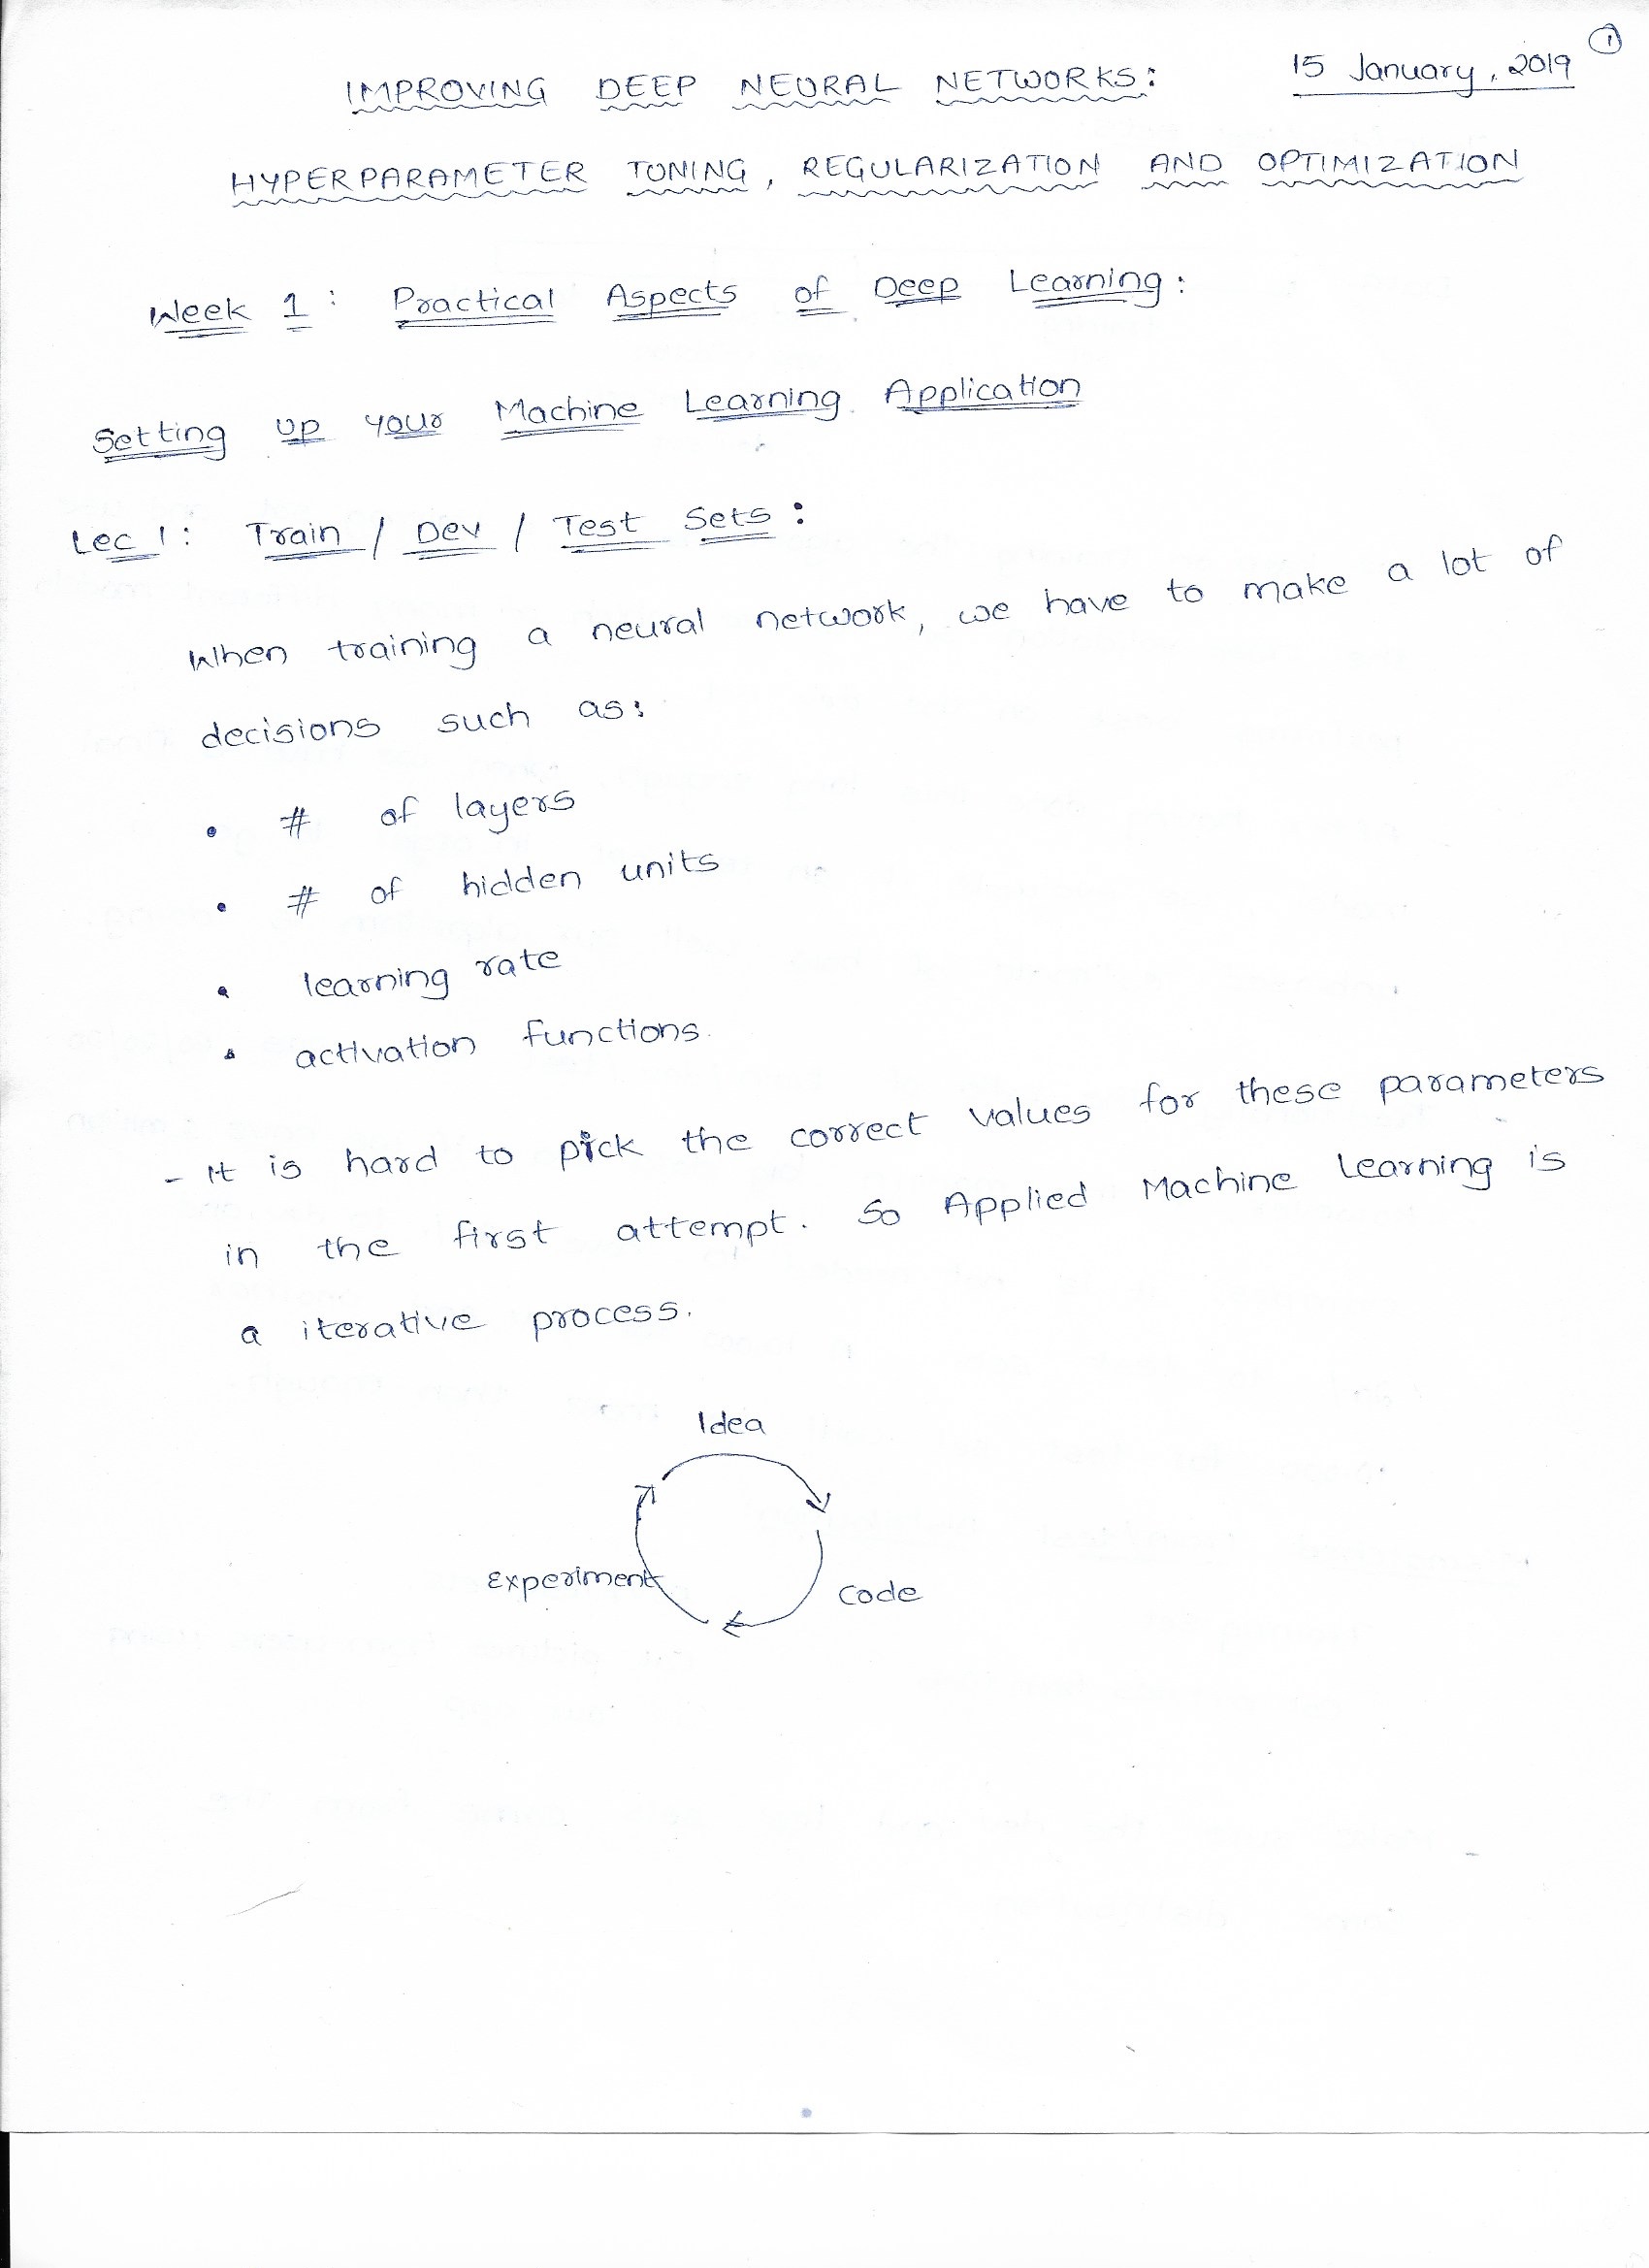 ①
IMPROVING DEEP NEURAL NETWORKS: 15 January, 2019
HYPERPARAMETER TUNING, REGULARIZATION AND OPTIMIZATION
Week 1: Practical Aspects of Deep Learning:
Setting up your Machine Learning Application
Lec 1: Train / Dev / Test Sets:
When training a neural network, we have to make a lot of
decisions such as:
• # of layers
• # of hidden units
• learning rate
• activation functions.
- It is hard to pick the correct values for these parameters
in the first attempt. So Applied Machine Learning is
a iterative process.
Idea
Experiment
Code